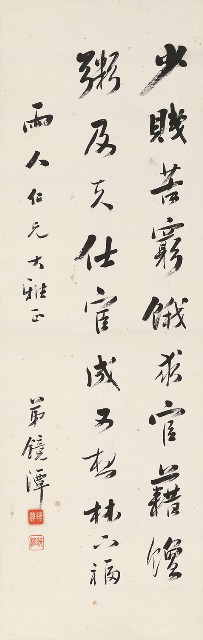 少賤苦窮餓求官藉饘
粥及夫仕宦成又想林下福
雨人仁兄大雅正
弟鏡潭